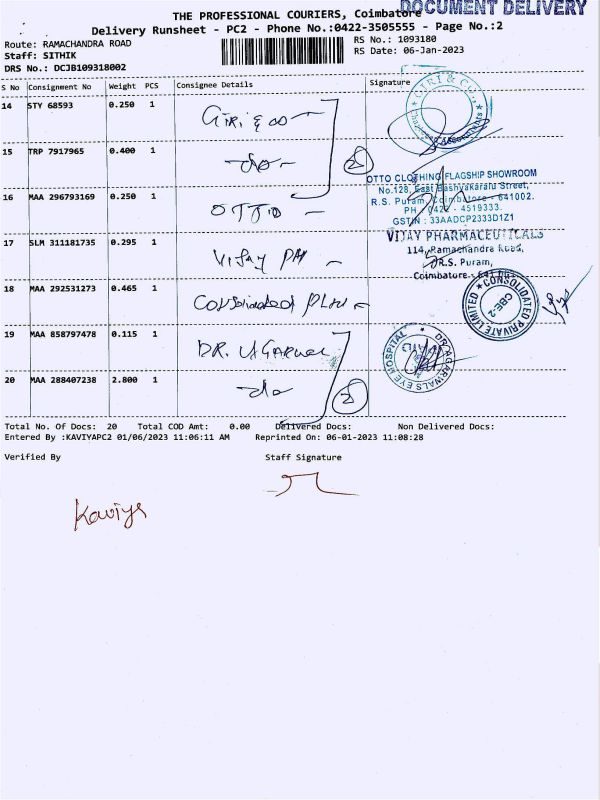 DOCUMENT DELIVERY
THE PROFESSIONAL COURIERS, Coimbatore
Delivery Runsheet - PC2 - Phone No.:0422-3505555 - Page No.:2
Route: RAMACHANDRA ROAD
RS No.: 1093180
Staff: SITHIK
RS Date: 06-Jan-2023
DRS No.: DCJB109318002
S No Consignment No Weight PCS Consignee Details Signature
14 STY 68593 0.250 1 Giri & co
GIRI & CO.,
15 TRP 7917965 0.400 1 -do- 2
OTTO CLOTHING FLAGSHIP SHOWROOM
No.128, East Bashyakaralu Street,
16 MAA 296793169 0.250 1 OTTO -
R.S. Puram, Coimbatore - 641002.
PH : 0422 - 4519333.
GSTIN : 33AADCP2333D1Z1
17 SLM 311181735 0.295 1 Vijay PH -
VIJAY PHARMACEUTICALS
114, Ramachandra Road,
R.S. Puram,
Coimbatore - 641 002
18 MAA 292531273 0.465 1 Consolidated
CONSOLIDATED PRIVATE LIMITED
CBE-2
19 MAA 858797478 0.115 1 DR. AGARWAL
DR.AGARWALS EYE HOSPITAL
20 MAA 288407238 2.800 1 -do 2
Total No. Of Docs: 20 Total COD Amt: 0.00 Delivered Docs: Non Delivered Docs:
Entered By :KAVIYAPC2 01/06/2023 11:06:11 AM Reprinted On: 06-01-2023 11:08:28
Verified By Staff Signature
Kaviya